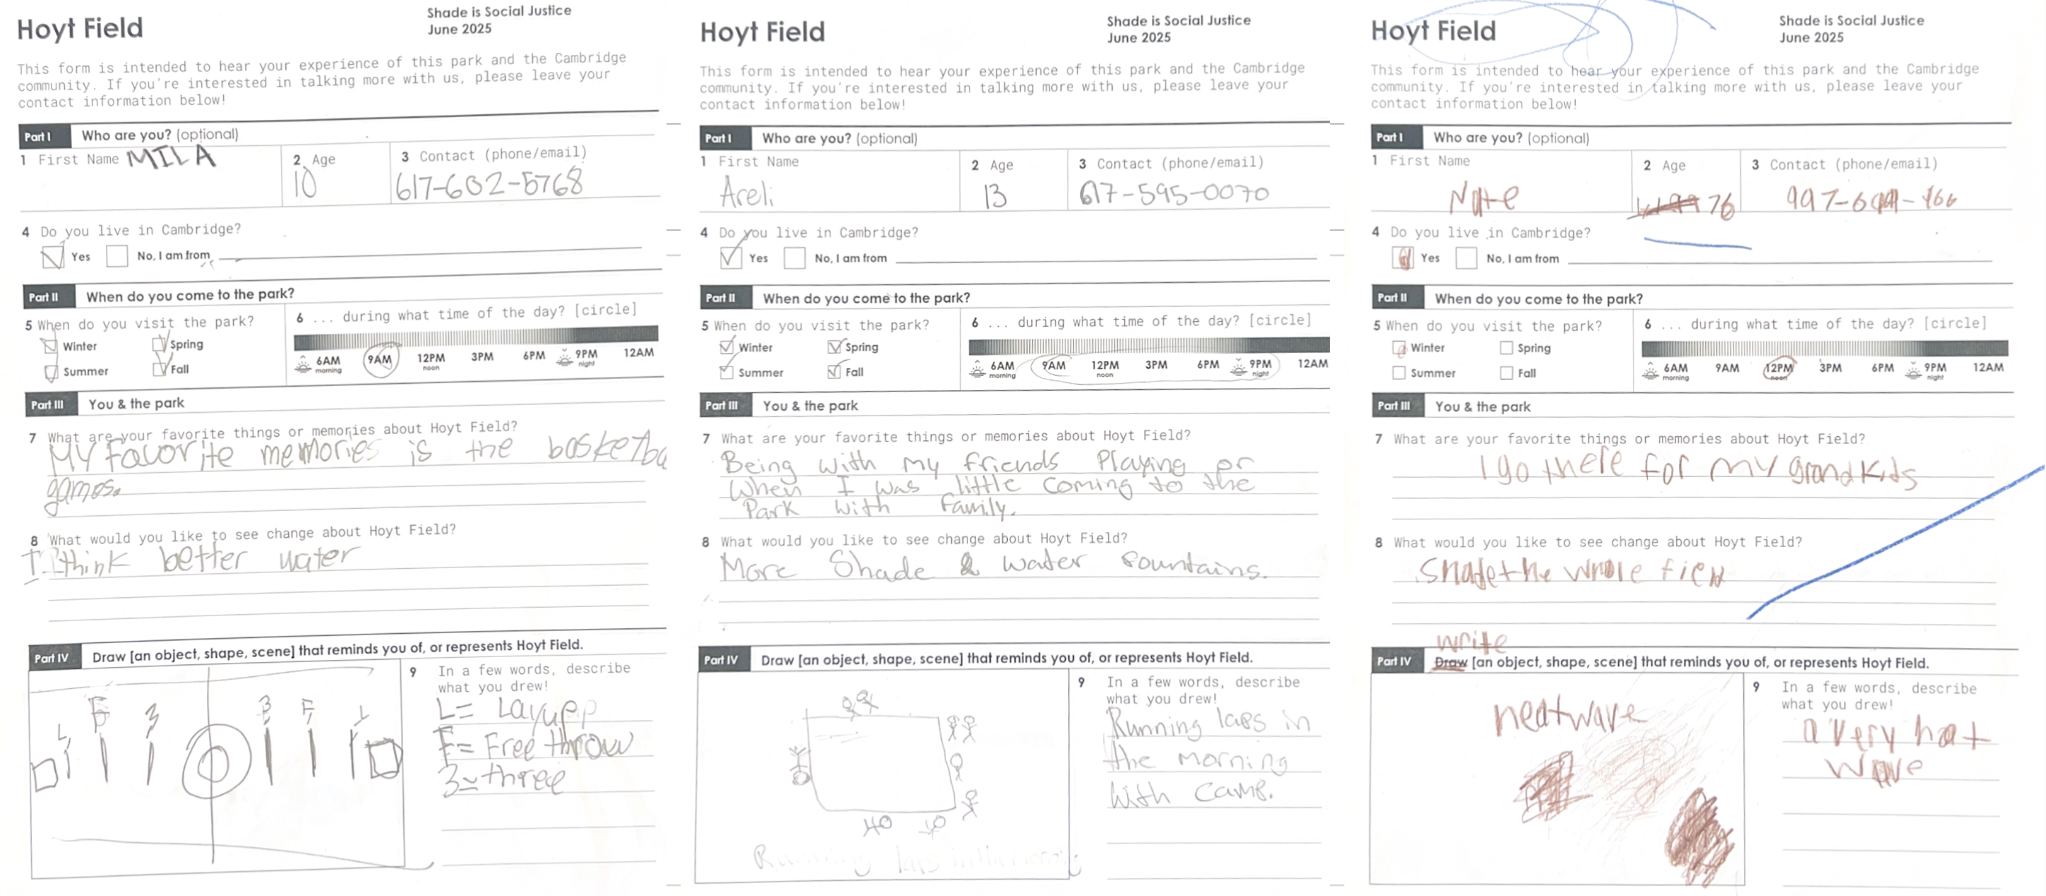 Hoyt Field
Shade is Social Justice
June 2025
This form is intended to hear your experience of this park and the Cambridge
community. If you're interested in talking more with us, please leave your
contact information below!
Part I Who are you? (optional)
1 First Name MILA
2 Age
10
3 Contact (phone/email)
617-602-5768
4 Do you live in Cambridge?
Yes No, I am from
Part II When do you come to the park?
5 When do you visit the park?
Winter Spring
Summer Fall
6 ... during what time of the day? [circle]
6AM 9AM 12PM 3PM 6PM 9PM 12AM
morning noon night
Part III You & the park
7 What are your favorite things or memories about Hoyt Field?
My favorite memories is the basketba
games.
8 What would you like to see change about Hoyt Field?
I think better water
Part IV Draw [an object, shape, scene] that reminds you of, or represents Hoyt Field.
L F 3 3 F L
9 In a few words, describe
what you drew!
L= Layupp
F= Free throw
3= three
Hoyt Field
Shade is Social Justice
June 2025
This form is intended to hear your experience of this park and the Cambridge
community. If you're interested in talking more with us, please leave your
contact information below!
Part I Who are you? (optional)
1 First Name
Areli
2 Age
13
3 Contact (phone/email)
617-595-0070
4 Do you live in Cambridge?
Yes No, I am from
Part II When do you come to the park?
5 When do you visit the park?
Winter Spring
Summer Fall
6 ... during what time of the day? [circle]
6AM 9AM 12PM 3PM 6PM 9PM 12AM
morning noon night
Part III You & the park
7 What are your favorite things or memories about Hoyt Field?
Being with my friends Playing or
When I was little coming to the
Park with family.
8 What would you like to see change about Hoyt Field?
More Shade & water fountains.
Part IV Draw [an object, shape, scene] that reminds you of, or represents Hoyt Field.
Running laps in the morning
9 In a few words, describe
what you drew!
Running laps in
the morning
with camp.
Hoyt Field
Shade is Social Justice
June 2025
This form is intended to hear your experience of this park and the Cambridge
community. If you're interested in talking more with us, please leave your
contact information below!
Part I Who are you? (optional)
1 First Name
Nate
2 Age
76
3 Contact (phone/email)
997-6
4 Do you live in Cambridge?
Yes No, I am from
Part II When do you come to the park?
5 When do you visit the park?
Winter Spring
Summer Fall
6 ... during what time of the day? [circle]
6AM 9AM 12PM 3PM 6PM 9PM 12AM
morning noon night
Part III You & the park
7 What are your favorite things or memories about Hoyt Field?
I go there for my grandkids
8 What would you like to see change about Hoyt Field?
Shade the whole field
write
Part IV Draw [an object, shape, scene] that reminds you of, or represents Hoyt Field.
heatwave
9 In a few words, describe
what you drew!
a very hot
wave